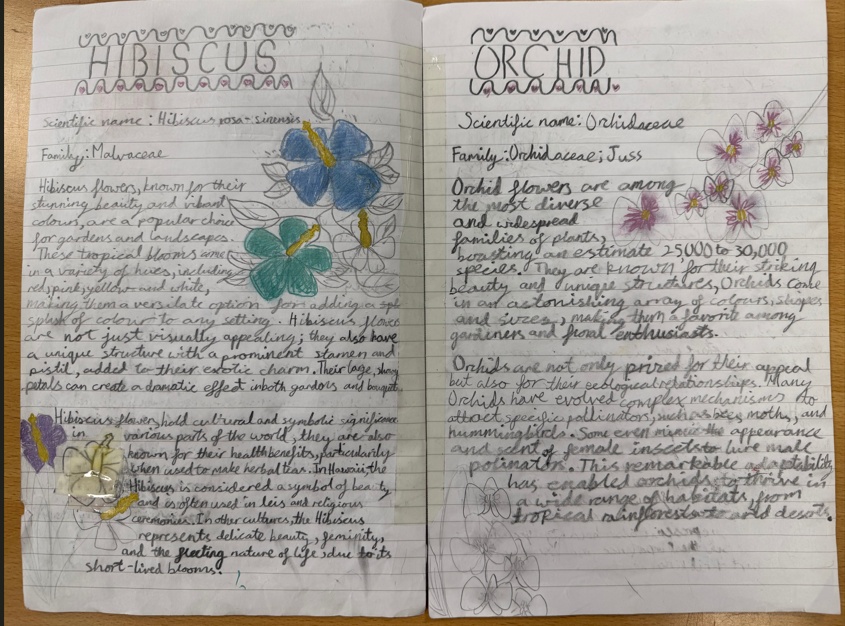 HIBISCUS
Scientific name : Hibiscus rosa-sinensis
Family: Malvaceae
Hibiscus flowers, known for their
stunning beauty and vibrant
colours, are a popular choice
for gardens and landscapes.
These tropical blooms come
in a variety of hues, including
red, pink, yellow and white,
making them a versitale option for adding a spl
splash of colour to any setting. Hibiscus flowers
are not just visually appealing; they also have
a unique structure with a prominent stamen and
pistil, added to their exotic charm. Their large, showy
petals can create a dramatic effect inboth gardens and bouquets.
Hibiscus flowers, hold cultural and symbolic significance
in various parts of the world, they are also
known for their health benefits, particularly
when used to make herbal teas. In Hawaii, the
Hibiscus is considered a symbol of beauty
and is often used in leis and religious
ceremonies. In other cultures, the Hibiscus
represents delicate beauty, feminity,
and the fleeting nature of life, due to its
short-lived blooms.
ORCHID
Scientific name: Orchidaceae
Family: Orchidaceae; Juss
Orchid flowers are among
the most diverse
and widespread
families of plants,
boasting an estimate 25,000 to 30,000
species. They are known for their striking
beauty and unique structures, Orchids come
in an astonishing array of colours, shapes
and sizes, making them a favorite among
gardeners and floral enthusiasts.
Orchids are not only prized for their appeal
but also for their ecological relationships. Many
Orchids have evolved complex mechanisms to
attract specific pollinators, such as bees, moths, and
hummingbirds. Some even mimic the appearance
and scent of female insects to lure male
polinators. This remarkable adaptability
has enabled orchids to thrive in
a wide range of habitats, from
tropical rainforests to arid deserts.